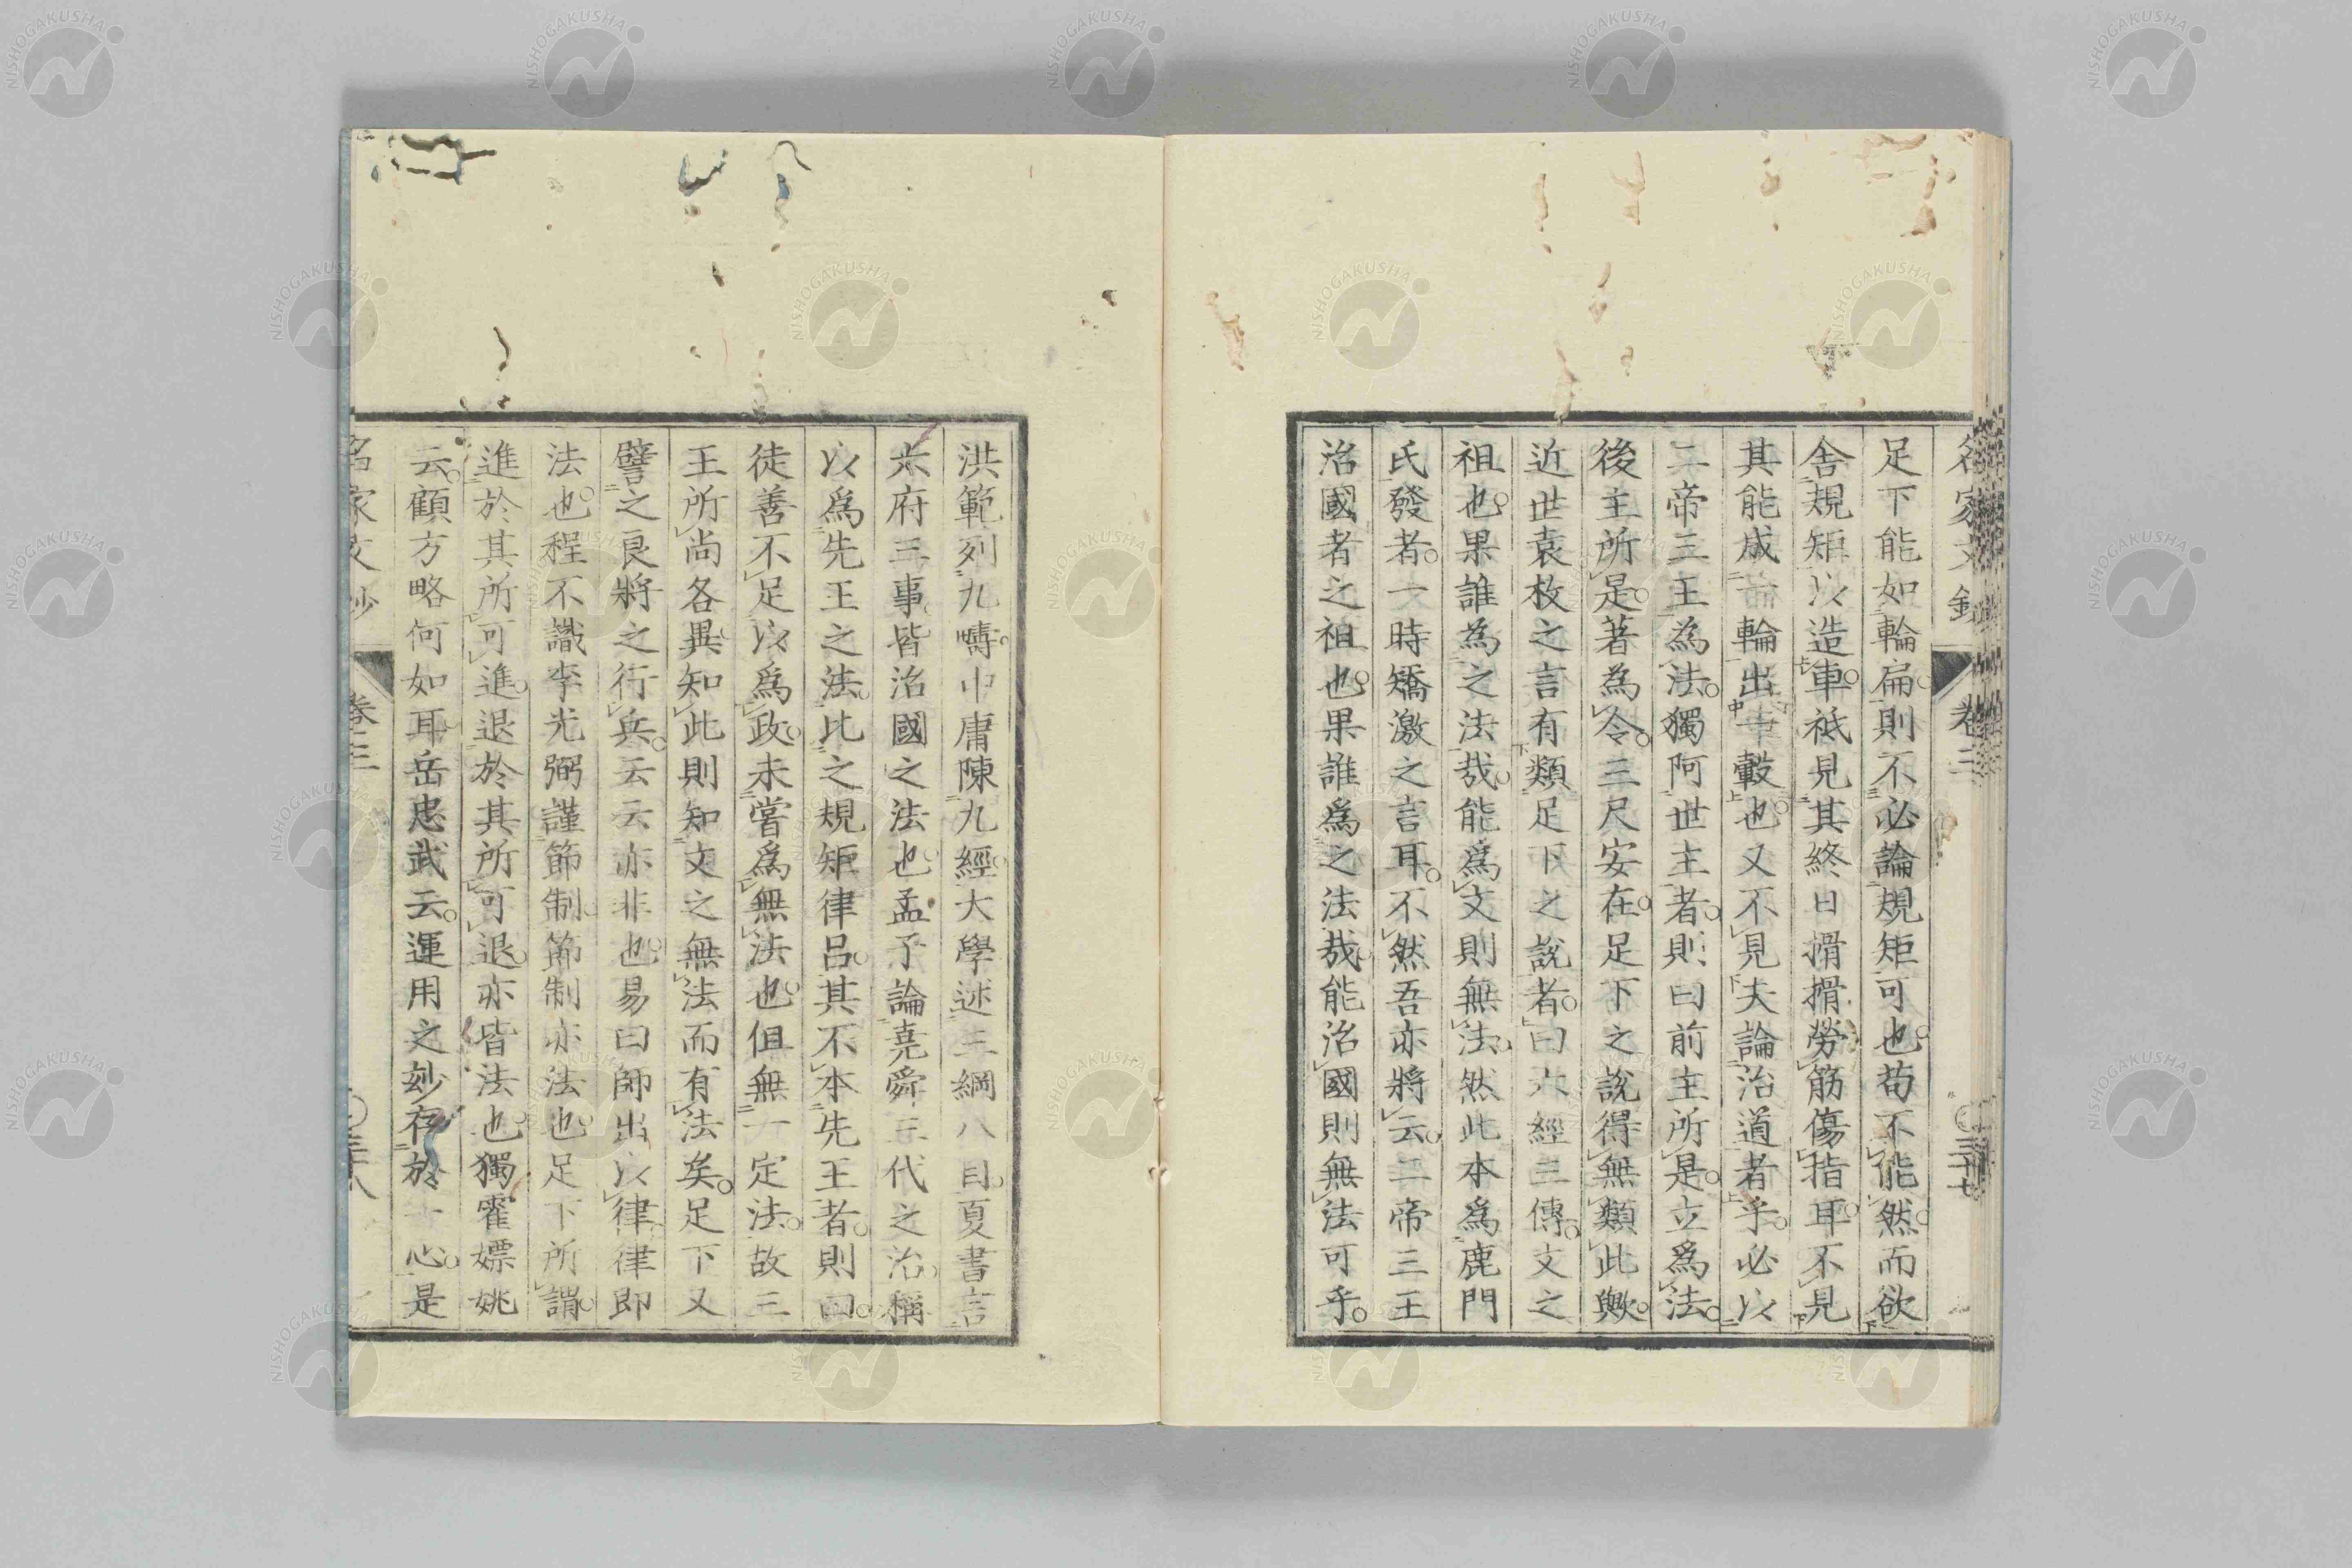 足下能如輪扁則不必論規矩可也苟不能然而欲
舍規矩以造車祗見其終日搰搰勞筋傷指耳不見
其能成一輪出車轂也又不見夫論治道者乎必以
二帝三王為法獨阿世主者則曰前主所是立爲法
後主所是著為令三尺安在足下之說得無類此歟
近世袁枚之言有類足下之說者曰六經三傳文之
祖也果誰為之法哉能爲文則無法然此本爲鹿門
氏發者一時矯激之言耳不然吾亦將云二帝三王
治國者之祖也果誰爲之法哉能治國則無法可乎
名家文鈔
卷三
三十七
洪範列九疇中庸陳九經大學述三綱八目夏書言
六府三事皆治國之法也孟子論堯舜三代之治稱
以爲先王之法比之規矩律呂其不本先王者則曰
徒善不足以爲政未嘗爲無法也但無一定法故三
王所尚各異知此則知文之無法而有法矣足下又
譬之良將之行兵云云亦非也易曰師出以律律即
法也程不識李光弼謹節制節制亦法也足下所謂
進於其所可進退於其所可退亦皆法也獨霍嫖姚
云顧方略何如耳岳忠武云運用之妙存於一心是
名家文鈔
卷三
三十八
NISHOGAKUSHA